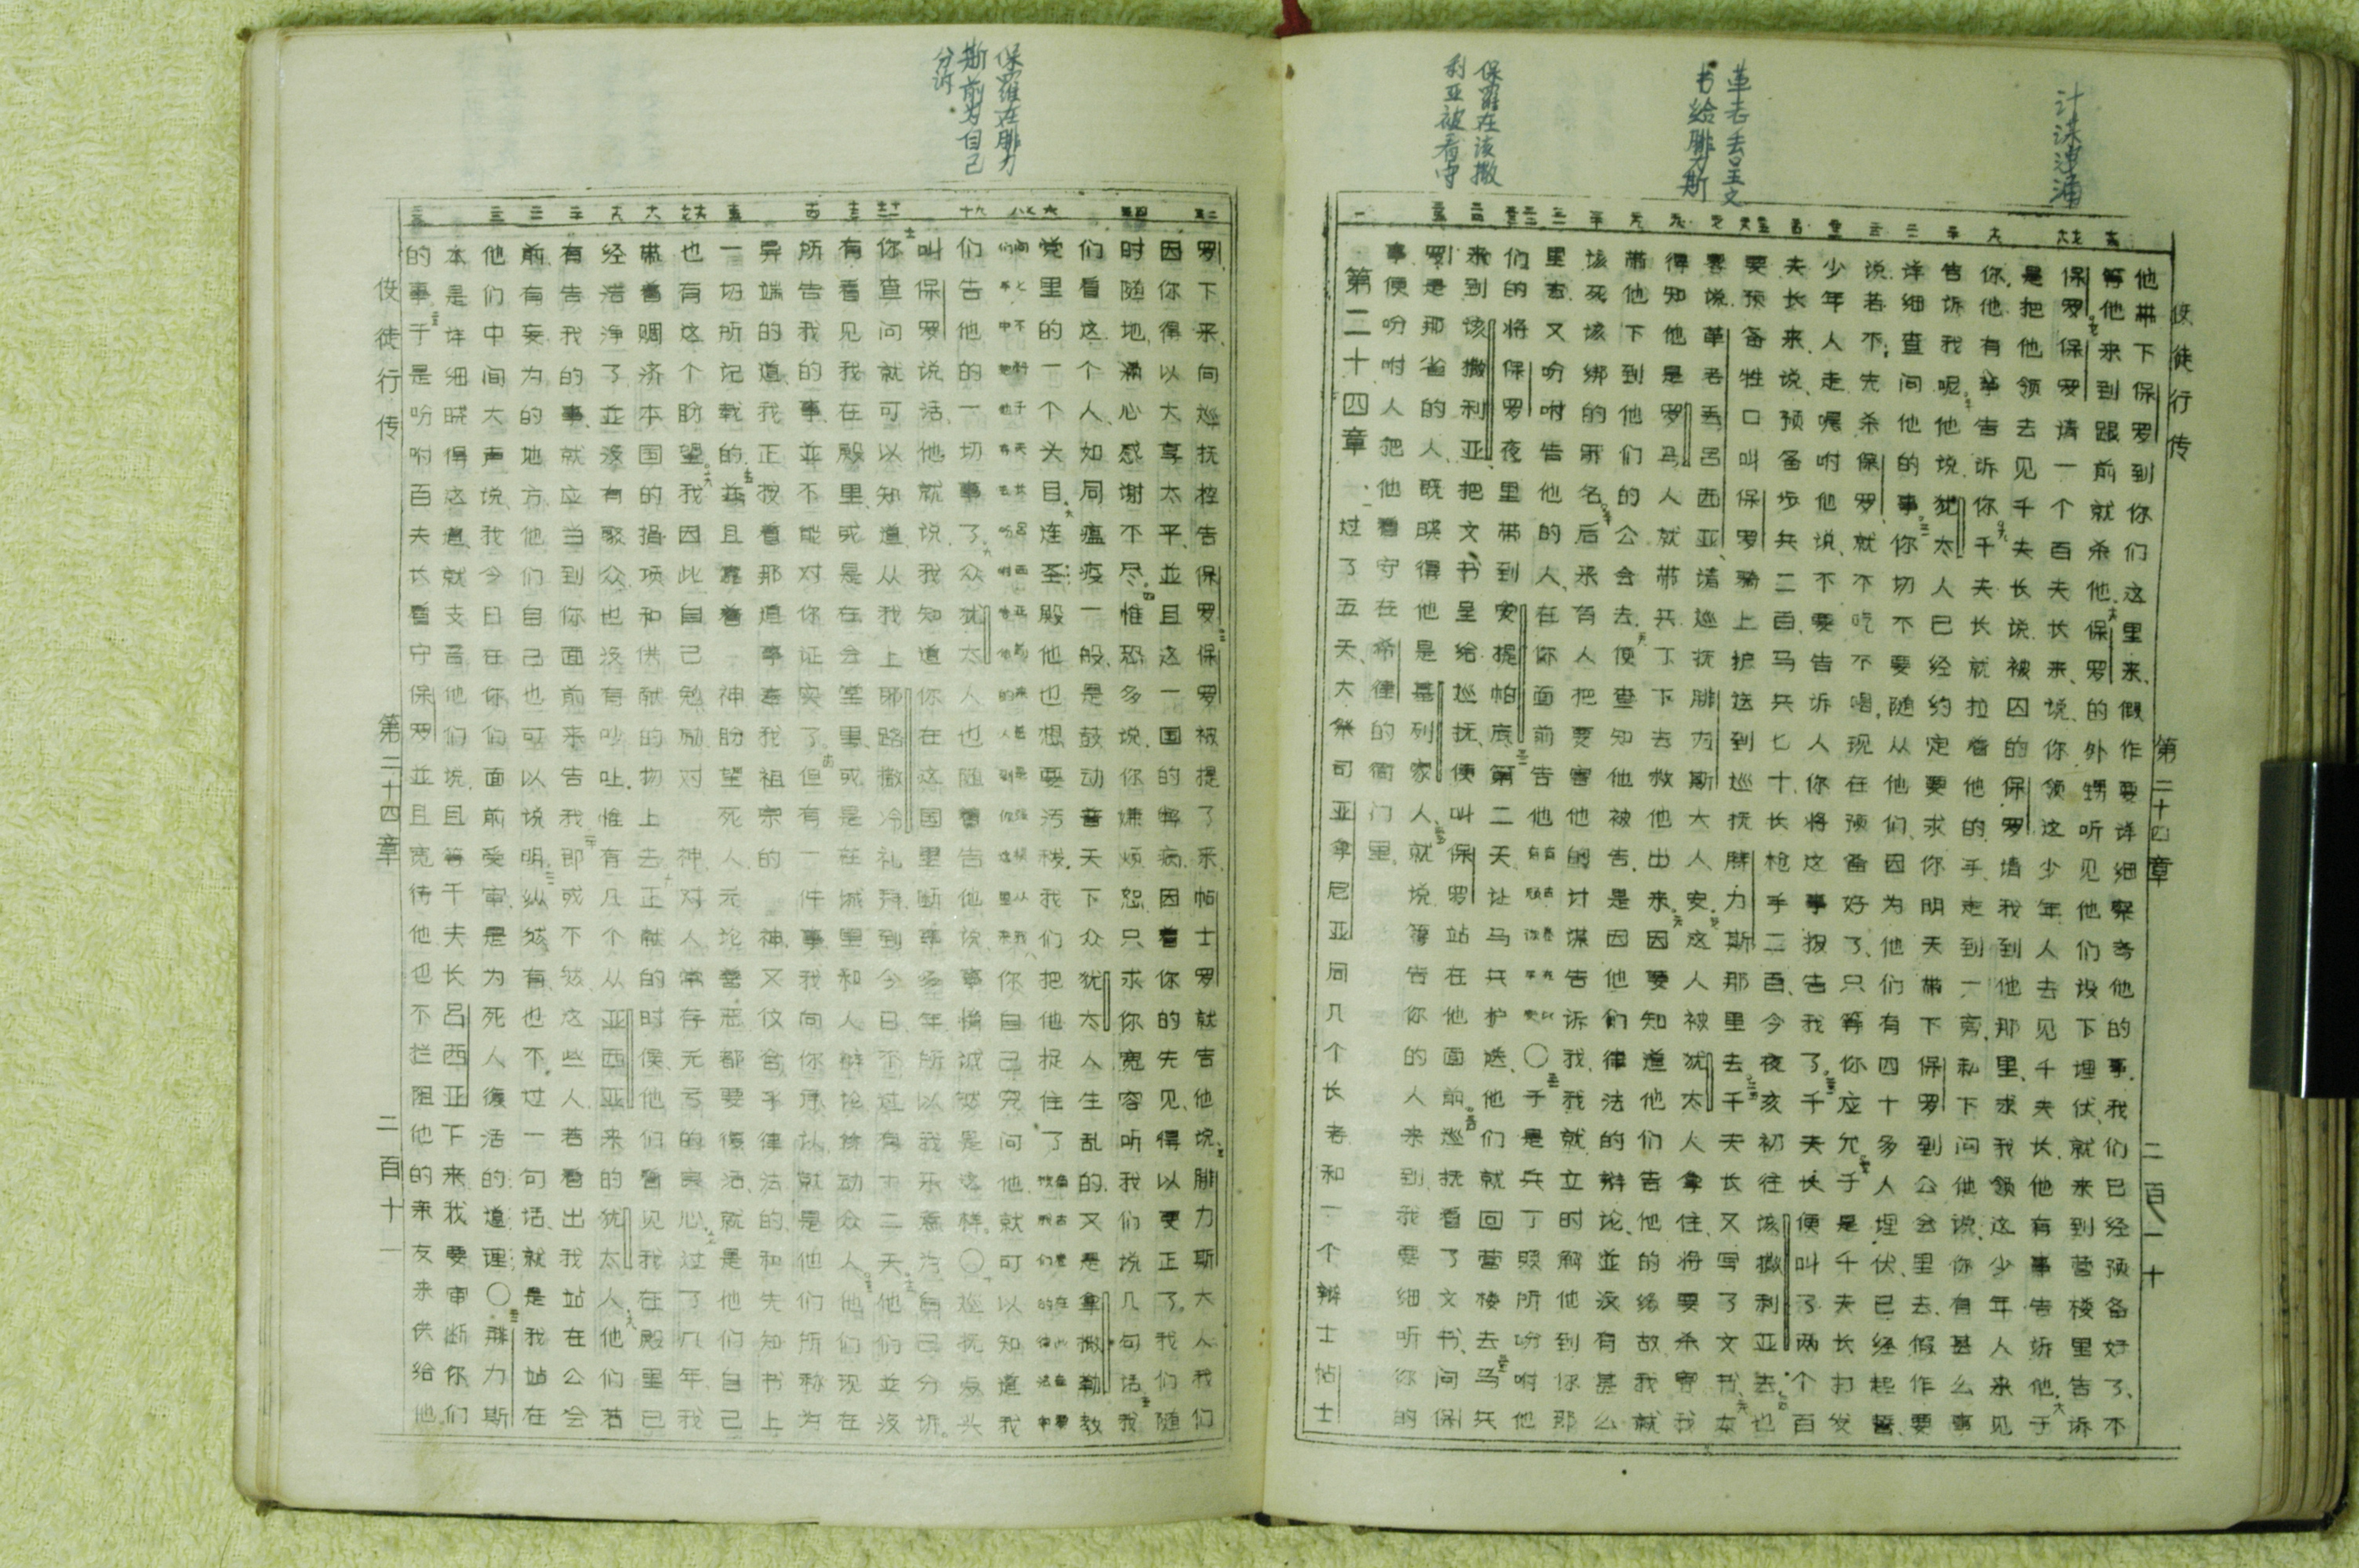 计谋洩漏
革老丢呈文
书给腓力斯
保羅在该撒
利亚被看守
使徒行传 第二十四章 二百一十
他带下保罗到你们这里来、假作要详细察考他的事.我们已经预备好了、不
等他来到跟前就杀他.保罗的外甥听见他们设下埋伏、就来到营楼里告诉
保罗.保罗请一个百夫长来、说、你领这少年人去见千夫长、他有事告诉他.于
是把他领去见千夫长说、被囚的保罗请我到他那里、求我领这少年人来见
你.他有事告诉你.千夫长就拉着他的手、走到一旁、私下问他说、你有甚么事
告诉我呢.他说、犹太人已经约定要求你明天带下保罗到公会里去、假作要
详细查问他的事.你切不要随从他们、因为他们有四十多人埋伏、已经起誓
说、若不先杀保罗、就不吃不喝、现在预备好了、只等你应允.于是千夫长打发
少年人走、嘱咐他说、不要告诉人你将这事报告我了.千夫长便叫了两个百
夫长来、说、预备步兵二百、马兵七十、长枪手二百、今夜亥初往该撒利亚去.也
要预备牲口叫保罗骑上、护送到巡抚腓力斯那里去.千夫长又写了文书、大
畧说、革老丢吕西亚、请巡抚腓力斯大人安.这人被犹太人拿住、将要杀害、我
得知他是罗马人、就带兵下去救他出来.因要知道他们告他的缘故、我就
带他下到他们的公会去.便查知他被告是因他们律法的辩论、並没有甚么
该死该绑的罪名.后来有人把要害他的计谋告诉我、我就立时解他到你那
里去、又吩咐告他的人、在你面前告他.○于是兵丁照所吩咐他
们的将保罗夜里带到安提帕底.第二天让马兵护送、他们就回营楼去.马兵
来到该撒利亚、把文书呈给巡抚、便叫保罗站在他面前.巡抚看了文书、问保
罗是那省的人、既晓得他是基利家人.就说、等告你的人来到我要细听你的
事.便吩咐人把他看守在希律的衙门里.
第二十四章 一 过了五天、大祭司亚拿尼亚同几个长老和一个辩士帖士
保羅在腓力
斯前为自己
分诉.
罗下来、向巡抚控告保罗.保罗被提了来、帖士罗就告他说、腓力斯大人、我们
因你得以大享太平、並且这一国的弊病、因着你的先见、得以更正了.我们随
时随地、满心感谢不尽.惟恐多说、你嫌烦、恕只求你宽容听我们说几句话.我
们看这个人、如同瘟疫一般、是鼓动普天下众犹太人生乱的、又是拿撒勒教
党里的一个头目.连圣殿他也想要污秽.我们把他捉住了.
你自己究问他、就可以知道我
们告他的一切事了.众犹太人也随着告他说、事情诚然是这样.○巡抚点头
叫保罗说话、他就说、我知道你在这国里断事多年、所以我乐意为自己分诉.
你查问就可以知道、从我上耶路撒冷礼拜到今日不过有十二天.他们並没
有看见我在殿里或是在会堂里、或是在城里和人辩论、耸动众人.他们现在
所告我的事、並不能对你证实了.但有一件事、我向你承认、就是他们所称为
异端的道、我正按着那道事奉我祖宗的 神、又合乎律法的、和先知书上
一切所记载的.並且靠着 神盼望死人、无论善恶、都要復活、就是他们自己
也有这个盼望.我因此自己勉励对 神对人、常存无亏的良心.过了几年我
带着赒济本国的捐项和供献的物上去.正献的时侯、他们看见我在殿里已
经洁净了、並没有聚众、也没有吵嚷.惟有几个从亚西亚来的犹太人.他们若
有告我的事、就应当到你面前来告我.即或不然、这些人、若看出我站在公会
前有妄为的地方、他们自己也可以说明.纵然有、也不过一句话、就是我站在
他们中间大声说、我今日在你们面前受审、是为死人復活的道理.○腓力斯
本是详细晓得这道、就支吾他们说、且等千夫长吕西亚下来、我要审断你们
的事.于是吩咐百夫长看守保罗、並且宽待他、也不拦阻他的亲友来供给他.
使徒行传 第二十四章 二百十一